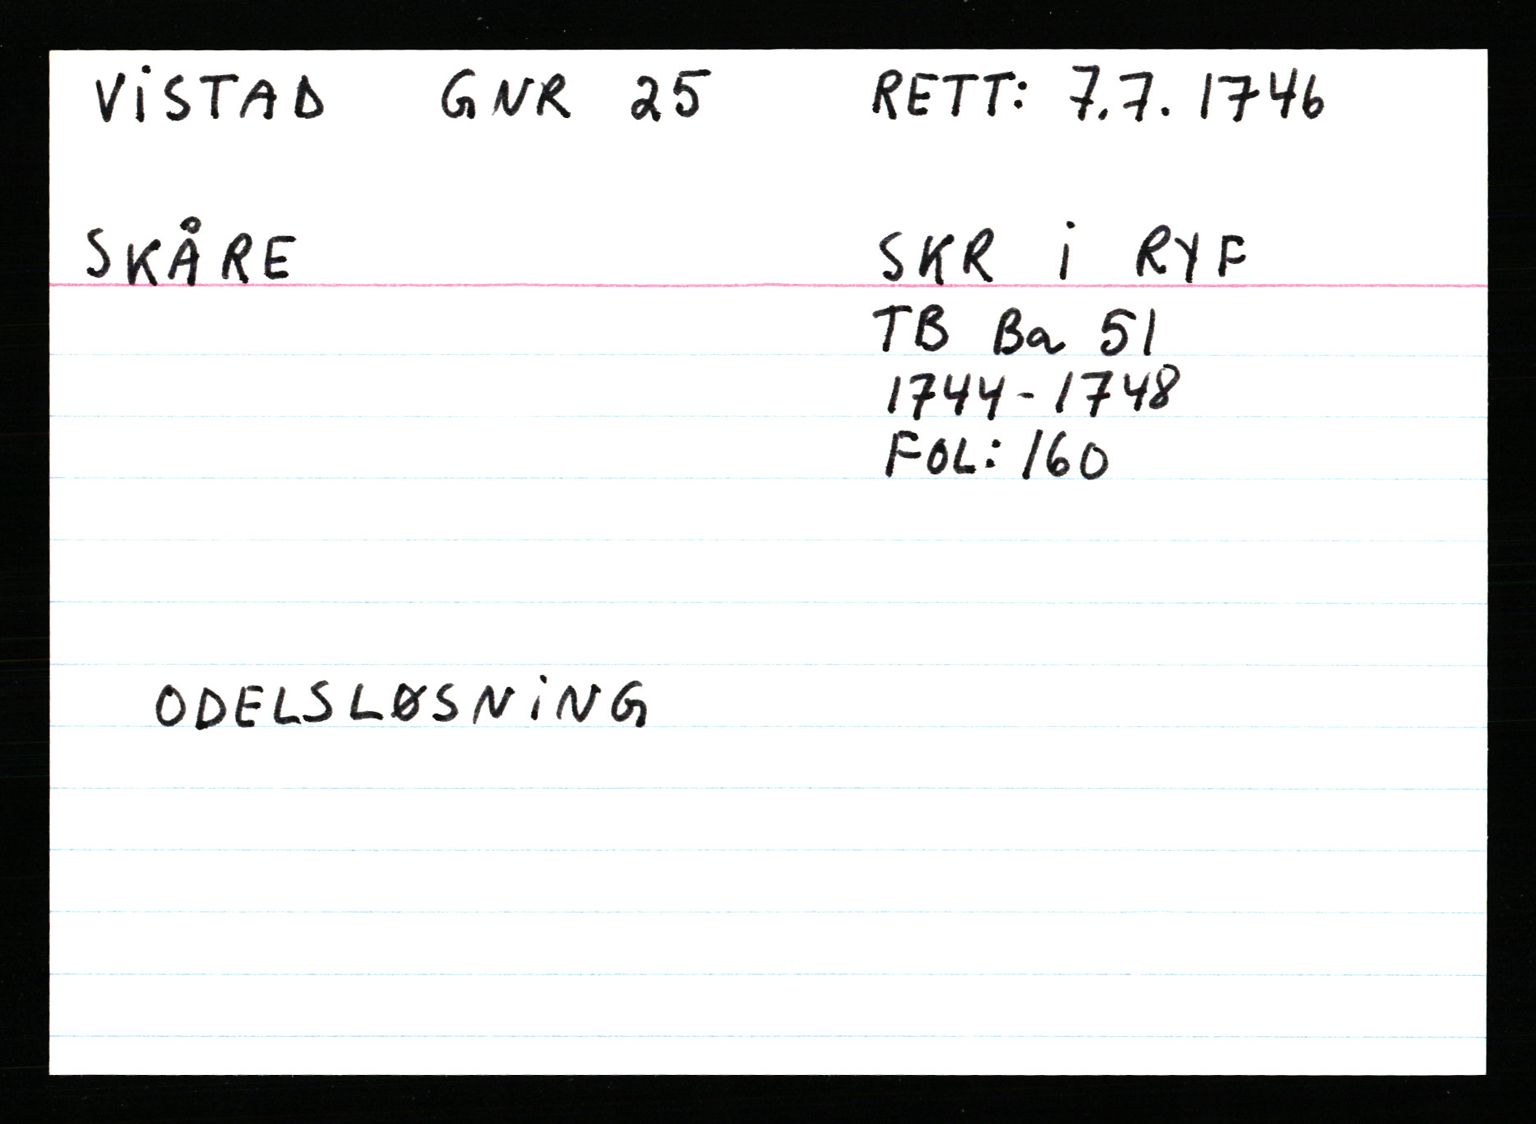 VISTAD GNR 25 RETT: 7.7.1746
SKÅRE SKR i RYF
TB Ba 51
1744-1748
FOL: 160
ODELSLØSNING